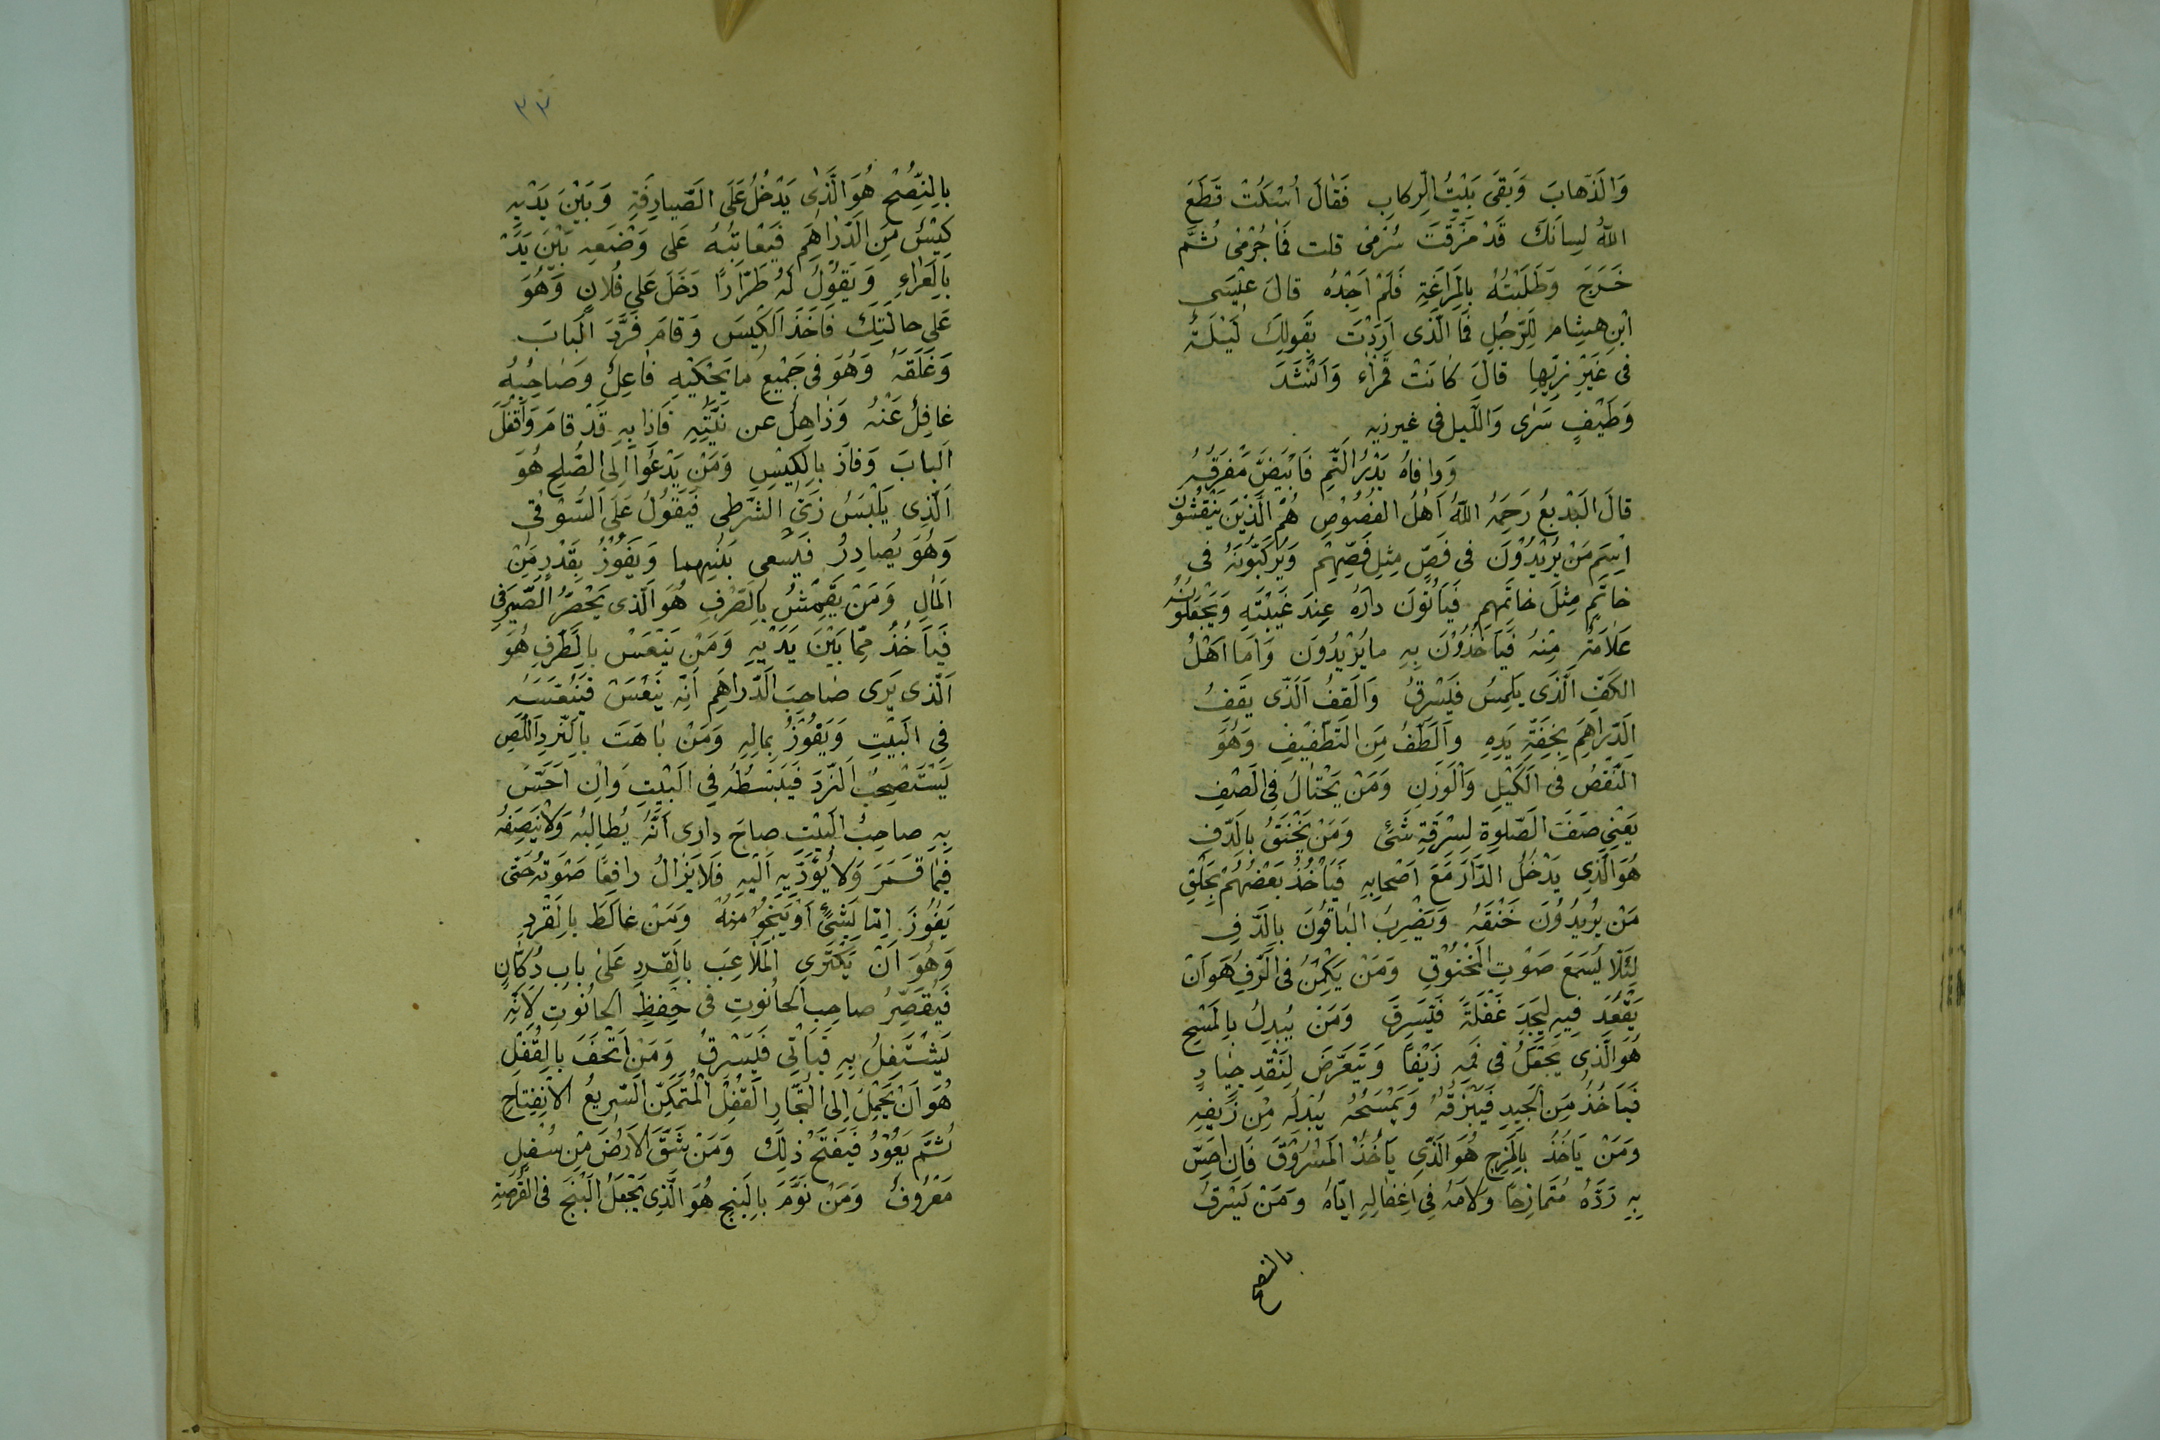 وَالذَّهابَ وَبَقَى بَيْتُ الرِّكابِ فَقالَ اُسْكُتْ قَطَعَ
اللّٰهُ لِسانَكَ قَدْ مَزَّقْتَ حُرَمى قلت فَما جُرْمى ثُمَّ
خَرَجَ وَطَلَبْتُهُ بِالمَراغَةِ فَلَمْ اَجِدْهُ قالَ عيْسَى
ابْنِ هِشام لِلرَّجُلِ فَما الَّذى اَرَدْتَ بِقَولِكَ لَيْلَةٌ
فى غَيْرِ زِيِّها قالَ كانَتْ قَمْراء وَاَنْشَدَ
وَطَيْفٍ سَرٰى وَاللَّيل فى غير زيه
وَوافاهُ بَدْرُ التَّمِ فَابْيَضَّ مَفرَقُهُ
قالَ البَديعُ رَحِمَهُ اللّٰهُ اَهْلُ الفُصُوْصِ هُمُ الَّذِيْنَ يَنْقُشُوْنَ
اِسْمَ مَنْ يُرِيْدُوْنَ فى فَصٍّ مِثلِ فَصِّهِمْ وَيُرَكِّبُوْنَهُ فى
خاتَمٍ مِثلَ خاتَمِهِم فَيَأتُونَ دارَهُ عِندَ غَيْبَتِهِ وَيَجْعَلُوْنَهُ
عَلاَمَةً مِنْهُ فَيَأخُذُوْنَ بِهِ ما يُرْيدُونَ وَاَما اَهْلُ
الكَفِّ الَّذى يَلمِسُ فَيَسْرِقُ وَالقفُ الَّذى يَقفُ
الدَّراهِمَ بِخِفَّةِ يَدِهِ وَالطَفُّ مِنَ التَّطْفيْفِ وَهُوَ
النَّقصُ فى الكَيْلِ وَالْوَزنِ وَمَنْ يَحْتالُ فِى الصَّفِ
يَعْنِى صَفَّ الصَّلوةِ لِسَرْقَةِ شَئٍ وَمَنْ يَخْنَقُ بِالدّفِ
هُوَ الَّذِى يَدْخُلُ الدَّارَ مَعَ اَصْحابِهِ فَيَأخُذُ بَعْضُهُمْ بِحَلْقِ
مَنْ يُرِيدُوْنَ خَنْقَهُ وَيَضْرِبُ الباقُونَ بِالدَّفِ
لِئَلّا يُسْمَعَ صَوْتِ المَخْنُوْقِ وَمَنْ يَكْمِنُ فى الرَّفِ هُوَ اَنْ
يَقْعُدَ فِيهِ لِيَجِدَ غَفْلَةً فَيَسْرِقَ وَمَنْ يُبْدِلُ بِالمَسْحِ
هُوَ الَّذِى يَجْعَلُ فى فَمِهِ زَيْفًا وَيَتَعَرَّضَ لِنَقْدِ جِيادٍ
فَيَأخُذُ مِنَ الجَيِدِ فَيَبْزُقُهُ وَيَمْسَحُهُ يُبْدِلُهُ مِنْ زَيْفِهِ
وَمَنْ يَأخُذُ بِالمَزحِ هُوَ الَّذِى يَأخُذُ المَسْرُوْقَ فَاِنْ اُحِسَّ
بِهِ رَدَّهُ مُتَمازِحًا وَلامَهُ فِى اِغْفالِهِ اِيّاهُ وَمَنْ يَسْرِقُ
بالنصح
٣٣
بِالنُّصْحِ هُوَ الَّذِى يَدْخُلُ عَلَى الصَّيارِفَةِ وَبَيْنَ يَدَيْهِ
كِيْسٌ مِنَ الدَّراهِمِ فَيُعاتِبُهُ عَلى وَضْعِهِ بَيْنَ يَدَيْهِ
بِالعَراءِ وَيَقُولُ لَهُ طَرّارًا دَخَلَ عَلى فُلانٍ وَهُوَ
عَلى حالَتِكَ فَاَخَذَ الكِيْسَ وَقامَ فَرَدَّ البابَ
وَغَلَقَهُ وَهُوَ فى جَمِيْعِ ما يَحْكيْهِ فاعِلٌ وَصاحِبُهُ
غافِلٌ عَنْهُ وَذاهِلٌ عن نِيَّتِهِ فَاِذا بِهِ قَدْ قامَ وَاَقْفَلَ
البابَ وَفازَ بِالكِيْسِ وَمَنْ يَدْعُوا اِلَى الصُّلحِ هُوَ
اَلّذِى يَلْبَسُ زِىَّ الشُّرَطى فَيَقُولُ عَلَى السُّوْقى
وَهُوَ يُصادِرُ فَيَسعى بَيْنَهما وَيَفُوْزُ بِقَدْرٍ مِنْ
المالِ وَمَنْ يَقمِشُ بِالصَّرْفِ هُوَ الَّذى يَحْضُرُ الصَّيْرَفى
فَيَأخُذُ مِمّا بَيْنَ يَدَيْهِ وَمَنْ يَنْعَسْ بِالطَّرَفِ هُوَ
الَّذى يَرى صاحِبَ الدَّراهِم اَنَّه يَنْعَسْ فَيُنْعِسُهُ
فِى البَيْتِ وَيَفُوْزُ بِمالِهِ وَمَنْ باهَتَ بِالنَّردِ اللِّصِ
يَسْتَصْحِبُ النَّردَ فَيَبْسُطُهُ فِى البَيْتِ وَاِن اَحَسَّ
بِهِ صاحِبُ البَيْتِ صاحَ دارى اَنَّهُ يُطالِبُهُ وَلا يُنصِفُهُ
فِيما قَمَرَ وَلا يُؤَدِّيهِ اِلَيْهِ فَلا يَزالُ رافِعًا صَوتَهُ حَتّى
يَفُوزَ اِمّا بِشَئٍ اَوْ يَنْجُوْ مِنْهُ وَمَنْ غالَطَ بِالقِرْدِ
وَهُوَ اَنْ يَكْتَرِى المَلاعِبَ بِالقِردِ عَلى بابِ دُكّانٍ
فَيُقَصِّرُ صاحِب الحانُوتِ فى حِفظِ الحانُوتِ لِاَنّه
يَشْتَغِلُ بِهِ فَيَأتى فَيَسْرِقُ وَمَنْ اَتْحَفَ بِالقُفْلِ
هُوَ اَنْ يَحْمِلَ اِلى التُّجّارِ القُفْلَ المُتَمَكِّنَ السَّرِيعُ الاَنْفِتاحِ
ثُمَّ يَعُوْدُ فَيَفتَحُ ذٰلِكَ وَمَنْ شَقَّ الاَرضَ مِنْ سُفلٍ
مَعْرُوفٌ وَمَنْ نَوَّمَ بِالبَنجِ هُوَ الَّذِى يَجْعَلُ البَنْجَ فى القُرْصَةِ